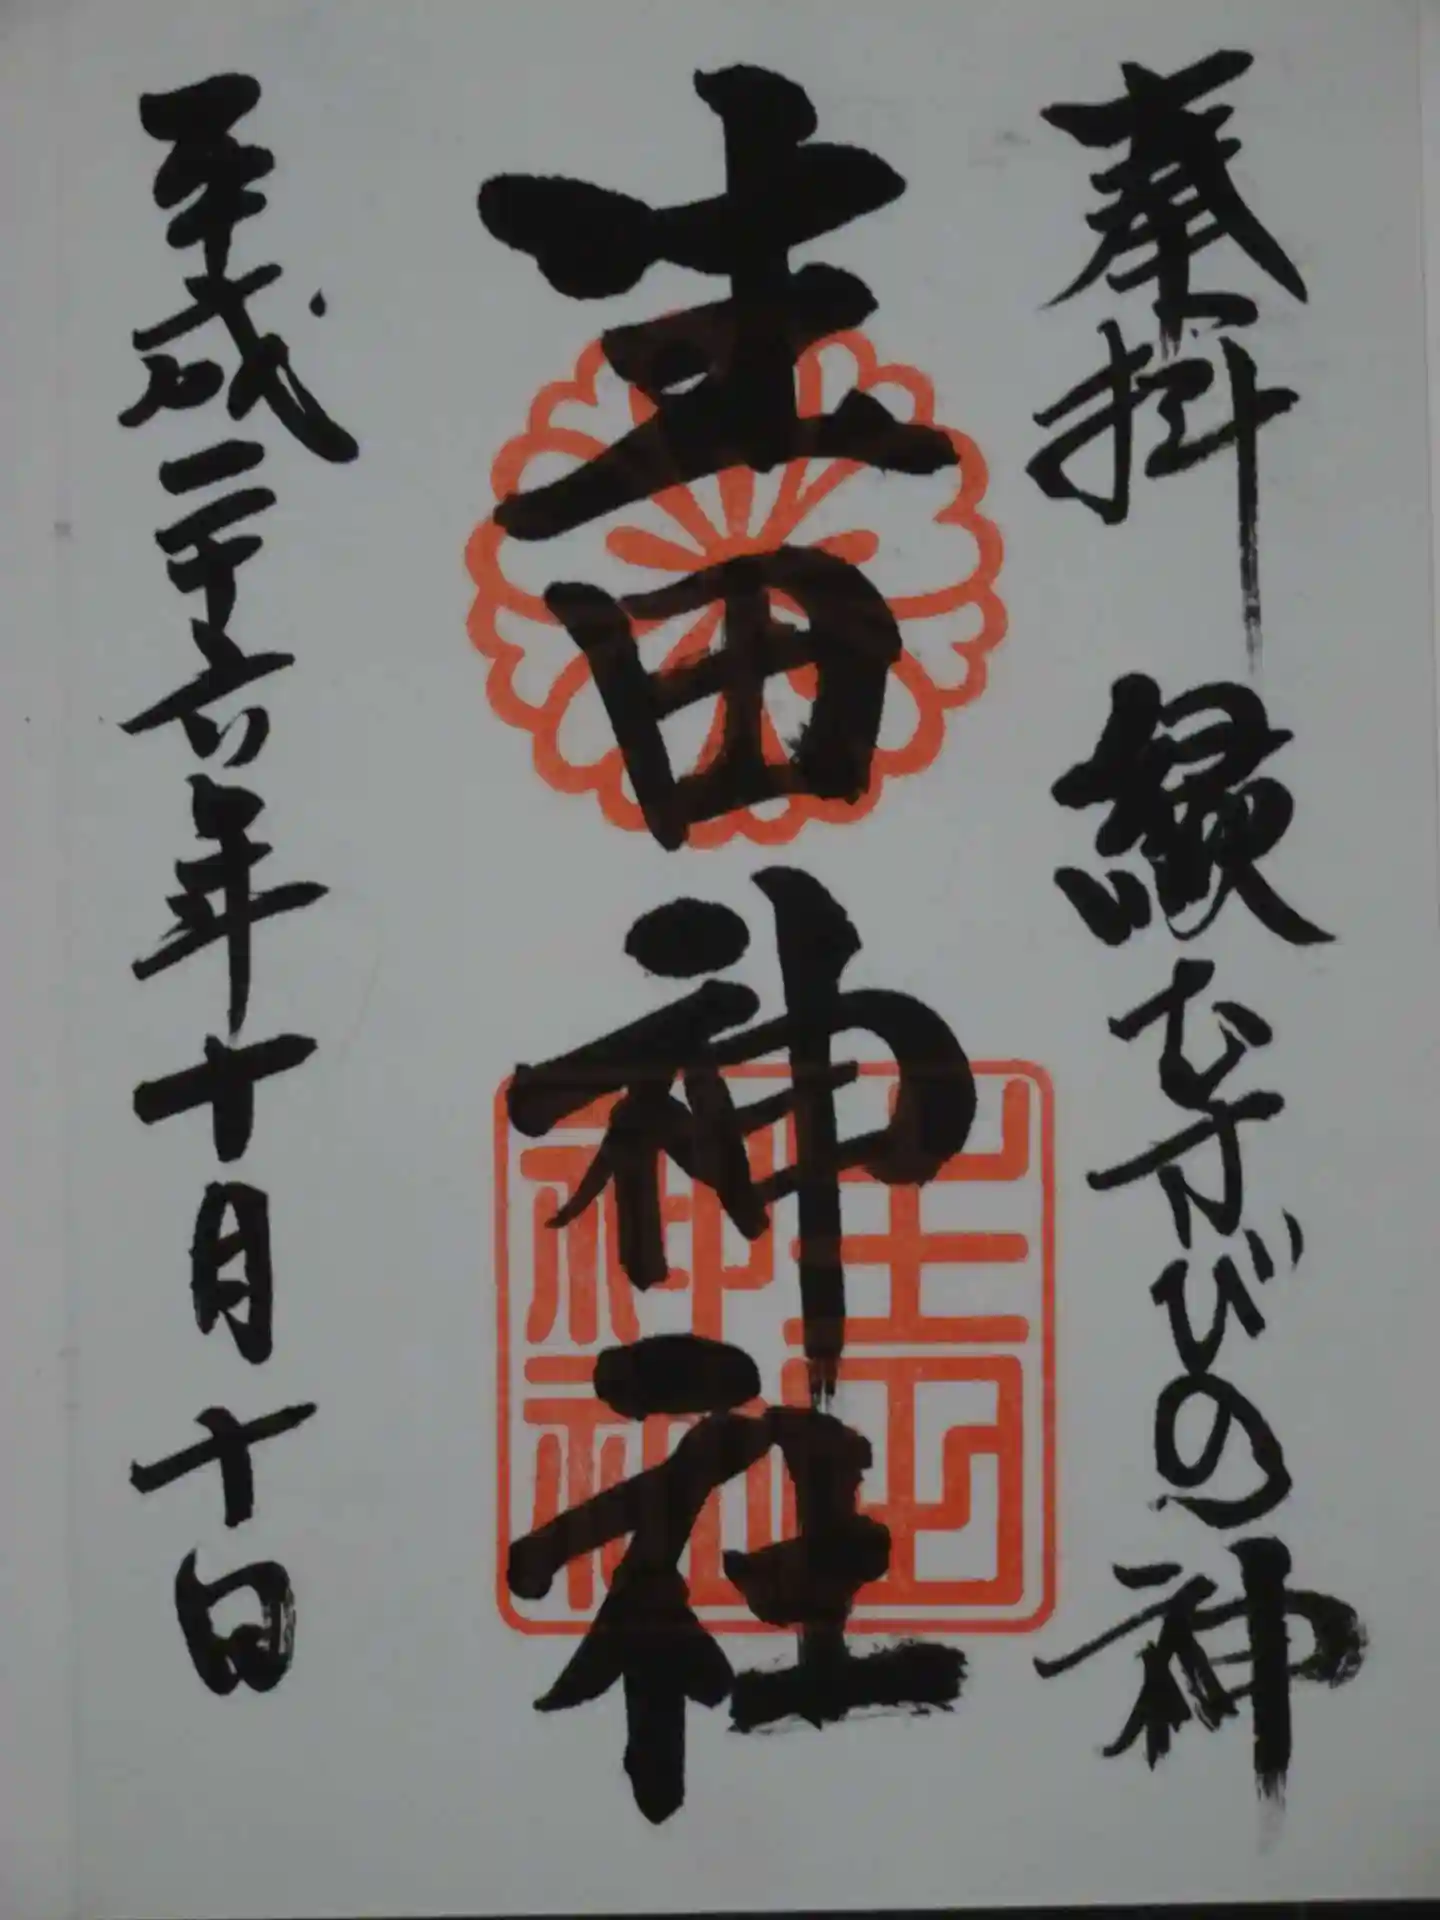 奉拝 縁むすびの神
生田神社
平成二十六年十月十日
生田
神社